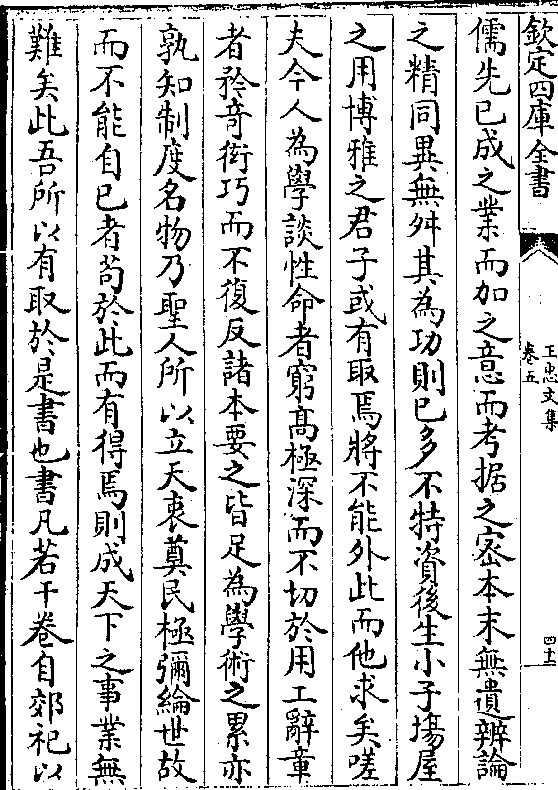 欽定四庫全書
王忠文集
卷五
四十一
儒先已成之業而加之意而考据之宻本末無遺辨論
之精同異無舛其為功則已多不特資後生小子塲屋
之用博雅之君子或有取焉將不能外此而他求矣嗟
夫今人為學談性命者窮髙極深而不切於用工辭章
者矜竒衒巧而不復反諸本要之皆足為學術之累亦
孰知制度名物乃聖人所以立天衷奠民極彌綸世故
而不能自已者茍於此而有得焉則成天下之事業無
難矣此吾所以有取於是書也書凡若干卷自郊祀以